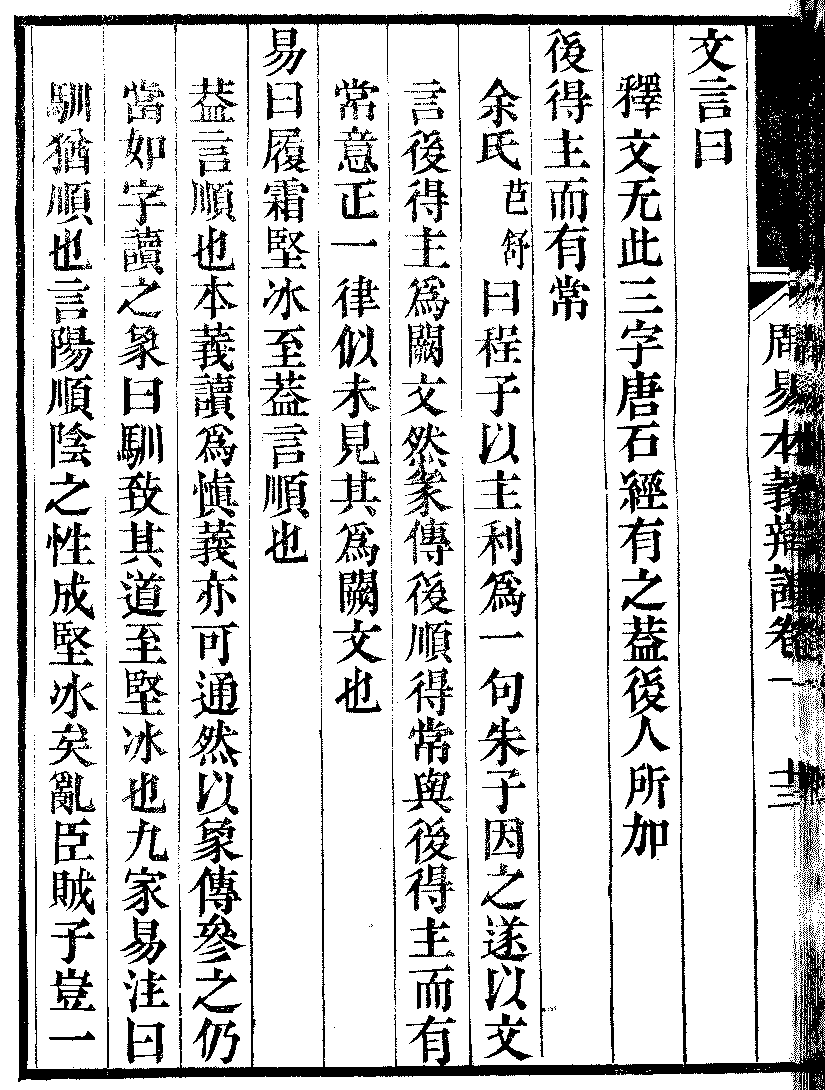 文言曰
釋文无此三字唐石經有之葢後人所加
後得主而有常
余氏芑舒曰程子以主利爲一句朱子因之遂以文
言後得主爲闕文然彖傳後順得常與後得主而有
常意正一律似未見其爲闕文也
易曰履霜堅冰至葢言順也
葢言順也本義讀爲愼義亦可通然以象傳參之仍
當如字讀之象曰馴致其道至堅冰也九家易注曰
馴猶順也言陽順陰之性成堅冰矣亂臣賊子豈一
周易本義辨證卷一
十三